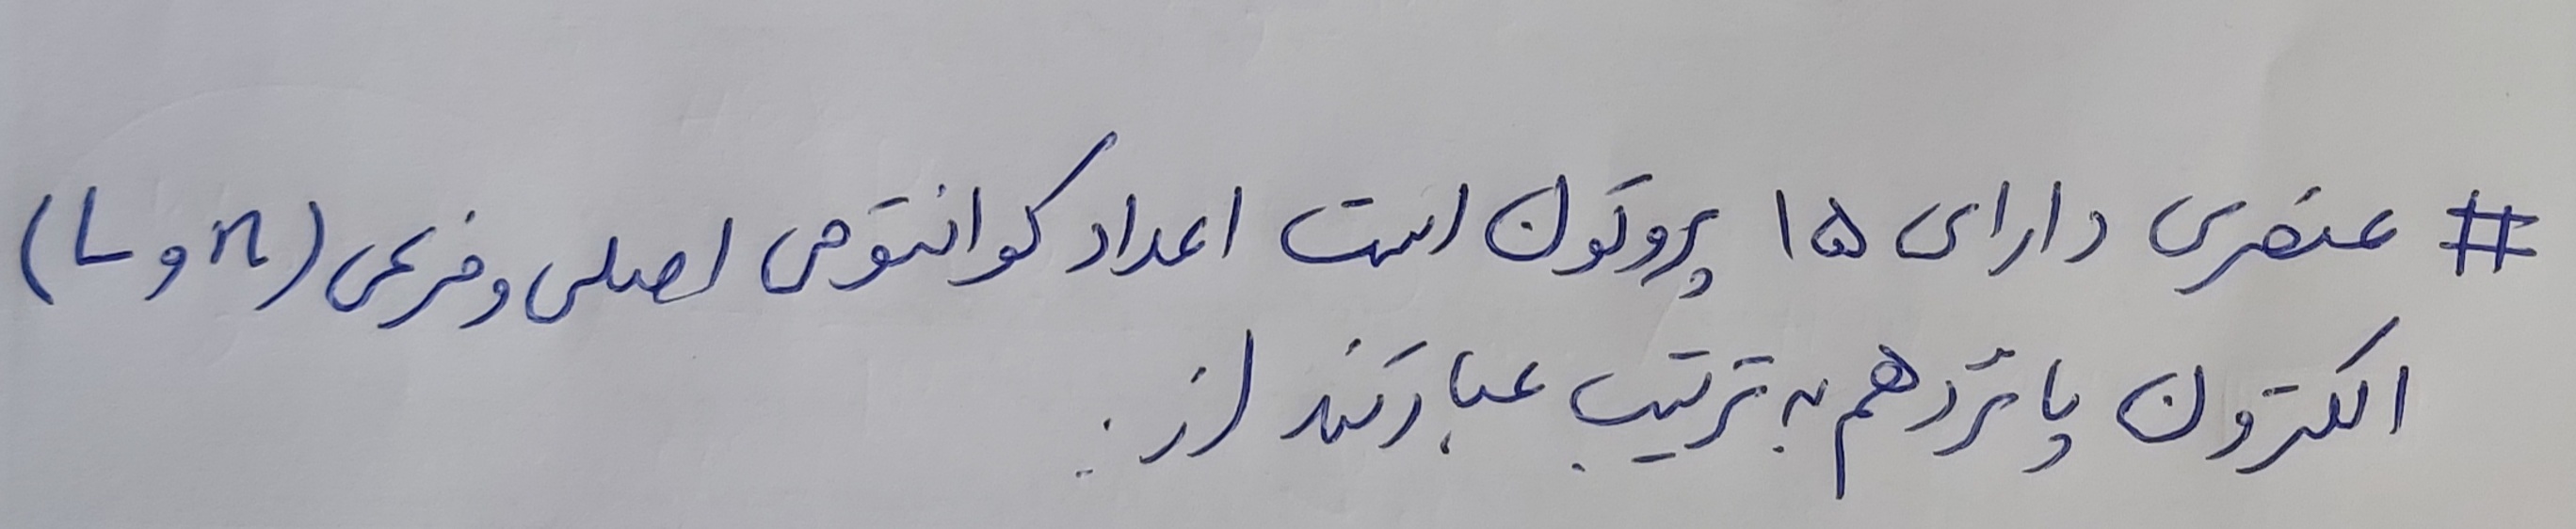 # عنصری دارای ۱۵ پروتون است اعداد کوانتومی اصلی و فرعی (n و L)
الکترون پانزدهم به ترتیب عبارتند از :